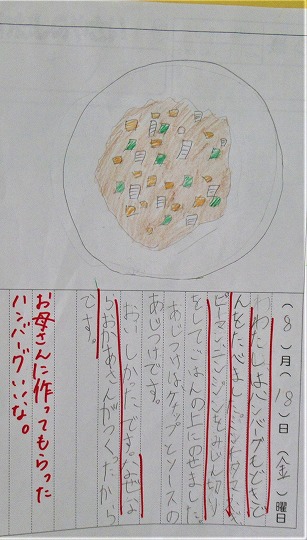 (8)月(18)日(金)曜日
わたしはハンバーグもどき
んをたべました。ミンチタマネギ
ピーマンニンジンをみじん切り
をしてごはんの上にのせました。
あじつけはケチャップとソースの
あじつけです。
おいしかったです。なぜな
らおかあさんがつくったから
です。
お母さんに作ってもらった
ハンバーグいいな。